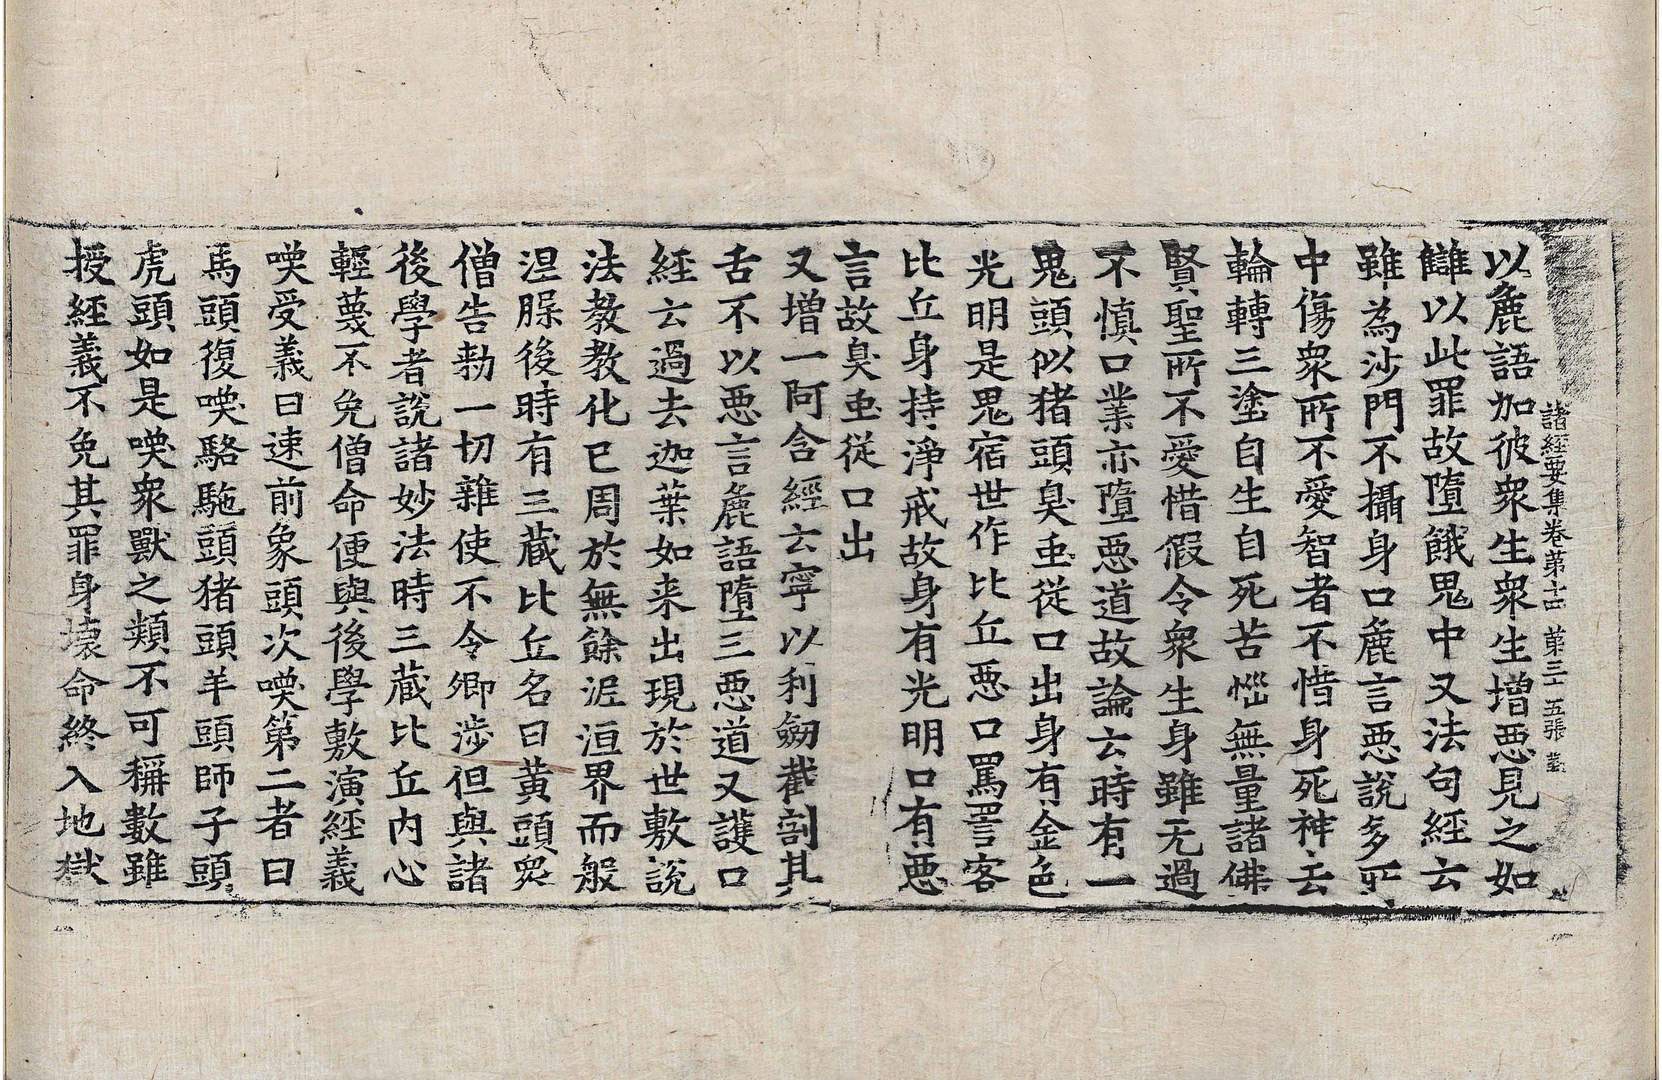 諸經要集卷第十四 第三十五張
以麁語加彼衆生衆生增惡見之如
讎以此罪故墮餓鬼中又法句經云
雖為沙門不攝身口麁言惡說多所
中傷衆所不愛智者不惜身死神去
輪轉三塗自生自死苦惱無量諸佛
賢聖所不愛惜假令衆生身雖无過
不慎口業亦墮惡道故論云時有一
鬼頭似猪頭臭虫從口出身有金色
光明是鬼宿世作比丘惡口罵詈客
比丘身持淨戒故身有光明口有惡
言故臭虫從口出
又增一阿含經云寧以利劒截割其
舌不以惡言麁語墮三惡道又護口
經云過去迦葉如来出現於世敷說
法教教化已周於無餘泥洹界而般
涅脲後時有三藏比丘名曰黃頭衆
僧告勑一切雜使不令卿涉但與諸
後學者說諸妙法時三藏比丘內心
輕蔑不免僧命便與後學敷演經義
喚受義曰速前象頭次喚第二者曰
馬頭復喚駱駞頭猪頭羊頭師子頭
虎頭如是喚衆獸之類不可稱數雖
授經義不免其罪身壞命終入地獄